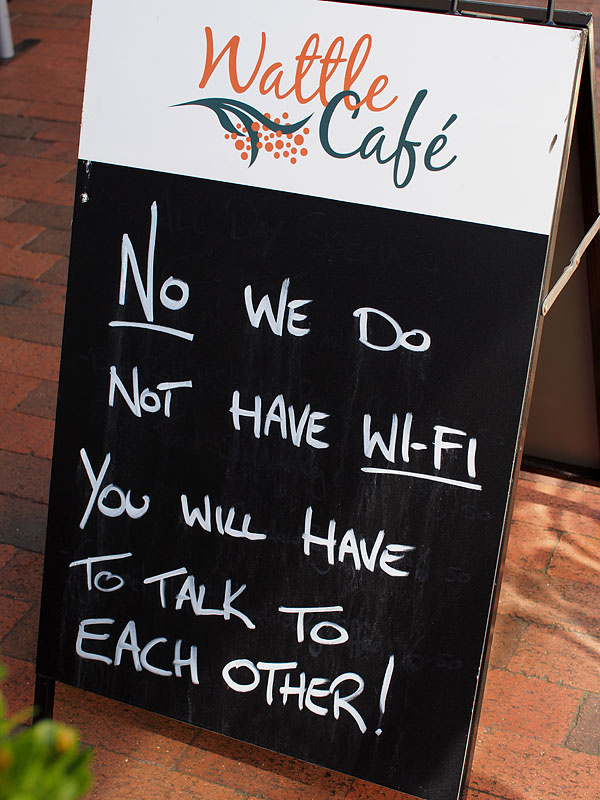 Wattle
Café
No WE DO
NOT HAVE WI-FI
YOU WILL HAVE
TO TALK TO
EACH OTHER!